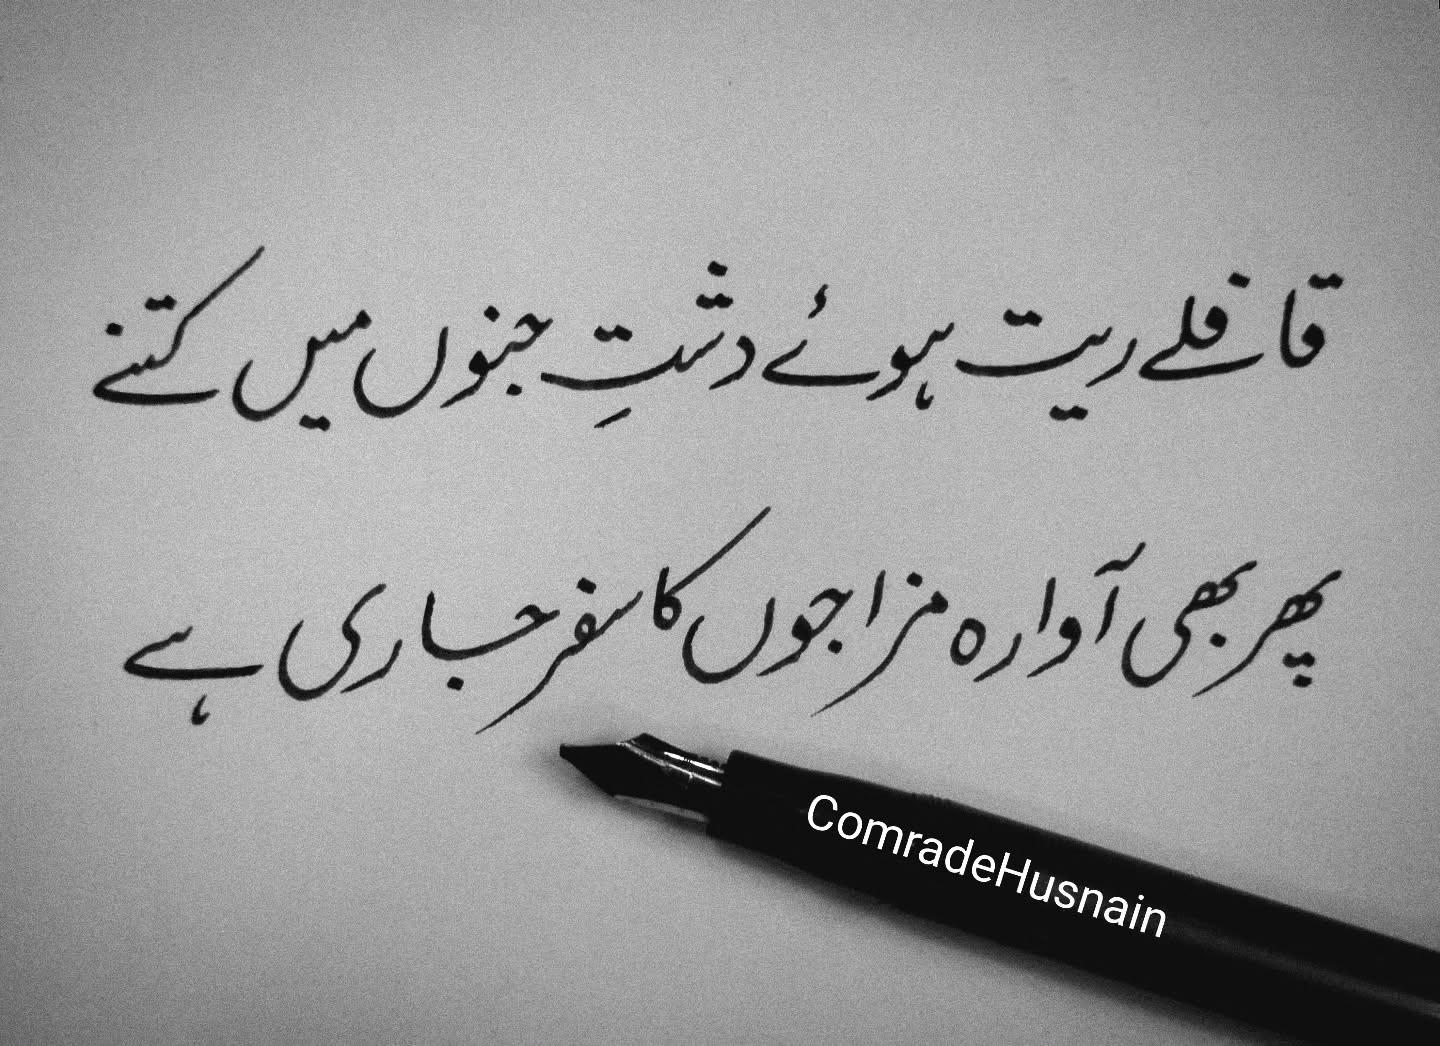 قافلے ریت ہوئے دشتِ جنوں میں کتنے
پھر بھی آوارہ مزاجوں کا سفر جاری ہے
ComradeHusnain